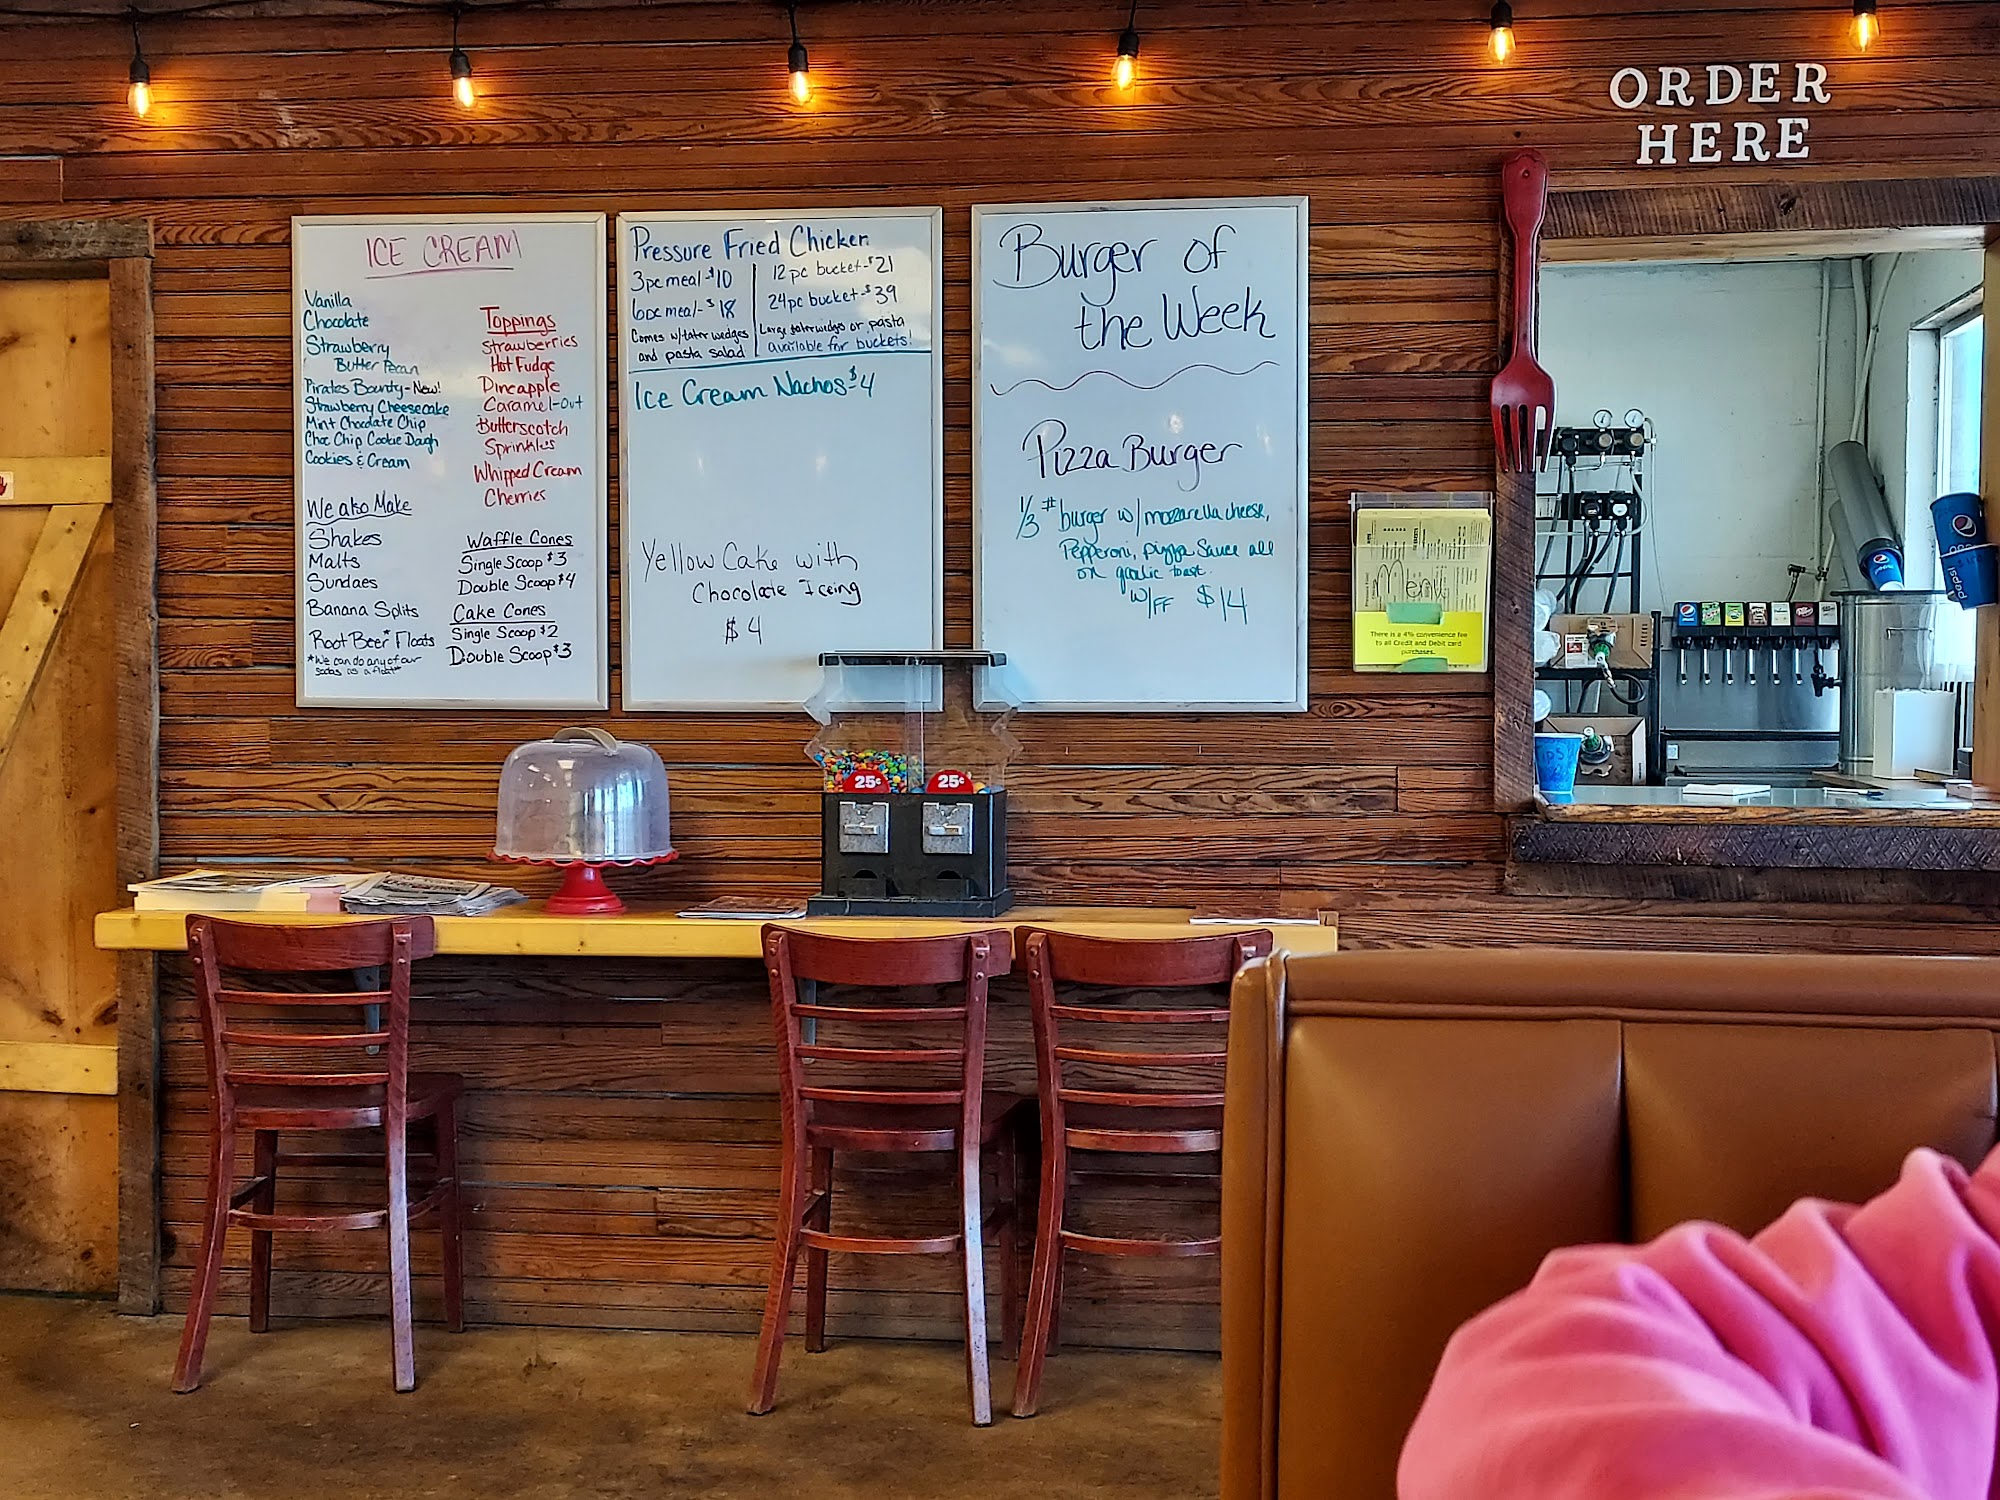 ORDER
HERE
ICE CREAM
Vanilla
Chocolate
Strawberry
Butter Pecan
Pirates Bounty-New!
Strawberry Cheesecake
Mint Chocolate Chip
Choc Chip Cookie Dough
Cookies & Cream
We also Make
Shakes
Malts
Sundaes
Banana Splits
Root Beer* Floats
*We can do any of our
sodas as a float*
Toppings
Strawberries
Hot Fudge
Pineapple
Caramel-Out
Butterscotch
Sprinkles
Whipped Cream
Cherries
Waffle Cones
Single Scoop $3
Double Scoop $4
Cake Cones
Single Scoop $2
Double Scoop $3
Pressure Fried Chicken
3pc meal-$10
6pc meal-$18
Comes w/tater wedges
and pasta salad
12 pc bucket-$21
24pc bucket-$39
Large taterwedges or pasta
available for buckets!
Ice Cream Nachos $4
Yellow Cake with
Chocolate Iceing
$4
Burger of
the Week
Pizza Burger
1/3 # burger w/ mozzarella cheese,
Pepperoni, pizza sauce all
on garlic toast.
w/FF $14
Menu
There is a 4% convenience fee
to all Credit and Debit card
purchases.
25¢
25¢
pepsi